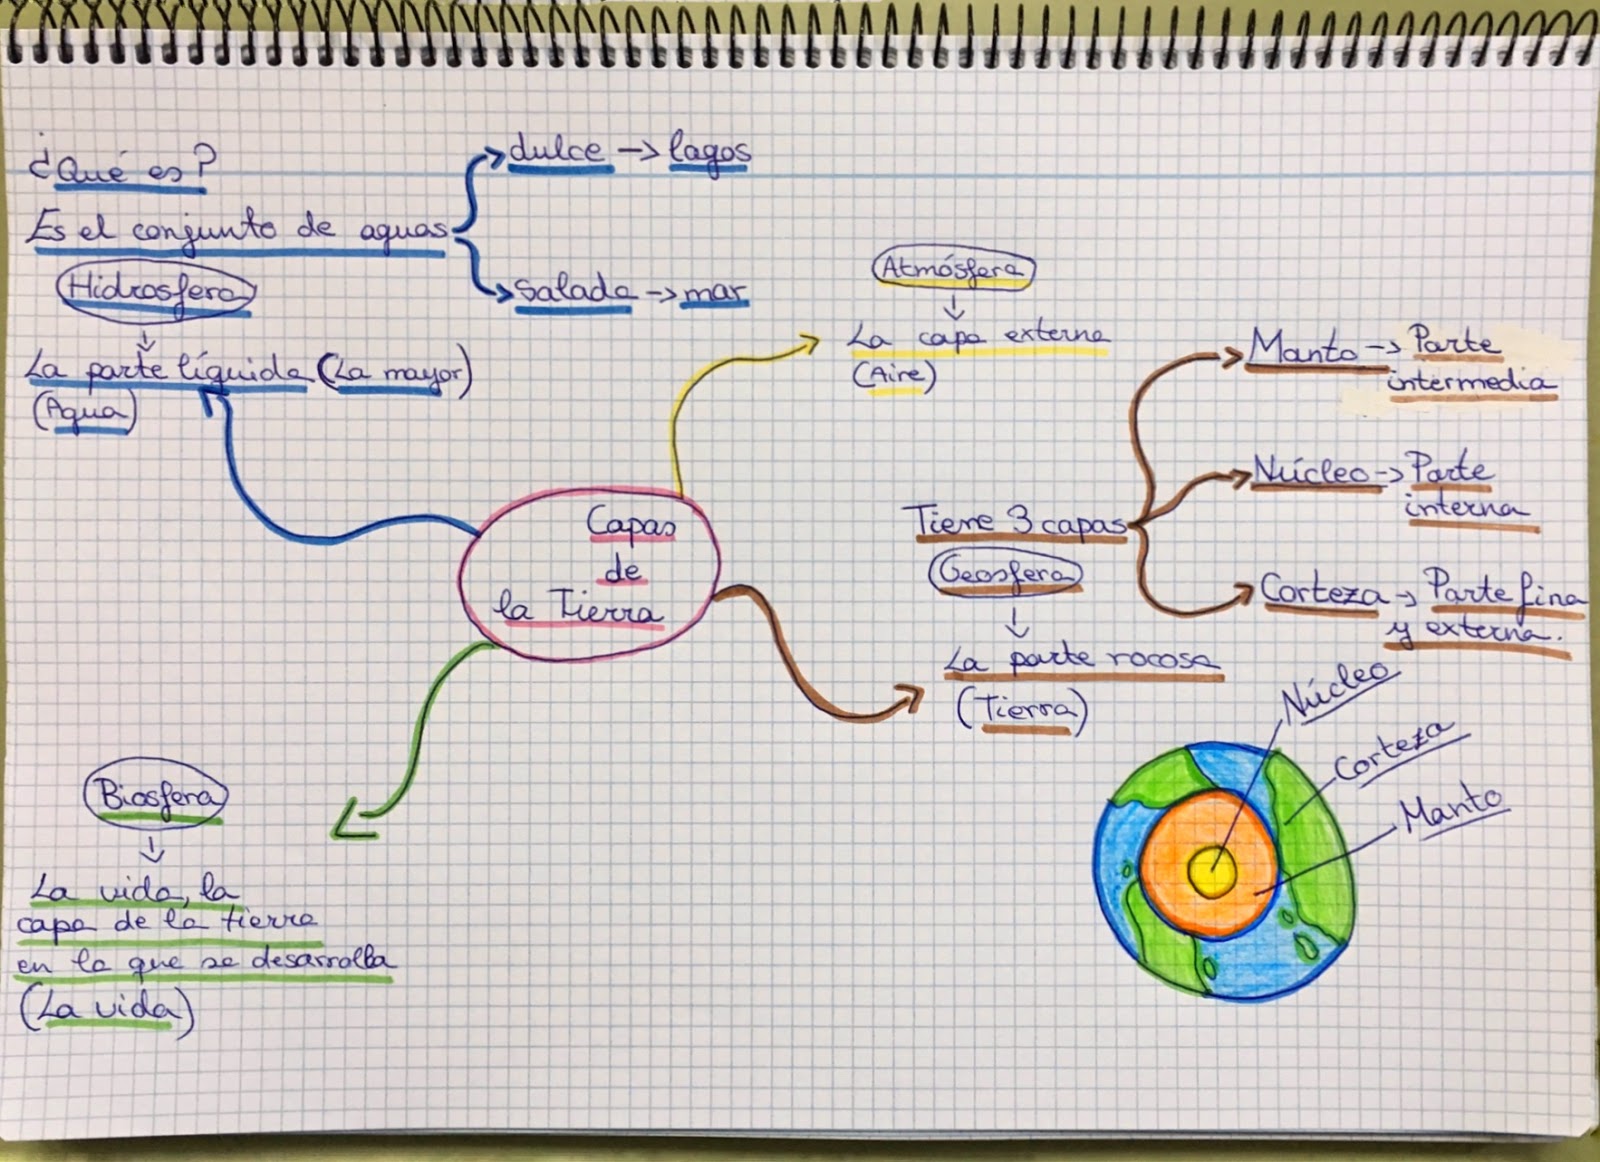 ¿Qué es?
Es el conjunto de aguas
dulce → lagos
salada → mar
Hidrosfera
↓
La parte líquida (La mayor)
(Agua)
Atmósfera
↓
La capa externa
(Aire)
Capas
de
la Tierra
Tiene 3 capas
Manto → Parte
intermedia
Núcleo → Parte
interna
Corteza → Parte fina
y externa.
Geosfera
↓
La parte rocosa
(Tierra)
Biosfera
↓
La vida, la
capa de la tierra
en la que se desarrolla
(La vida)
Núcleo
Corteza
Manto